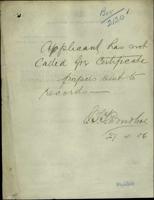 Box
2120
Applicant has not
Called for Certificate
papers sent to
records —
27 4 06